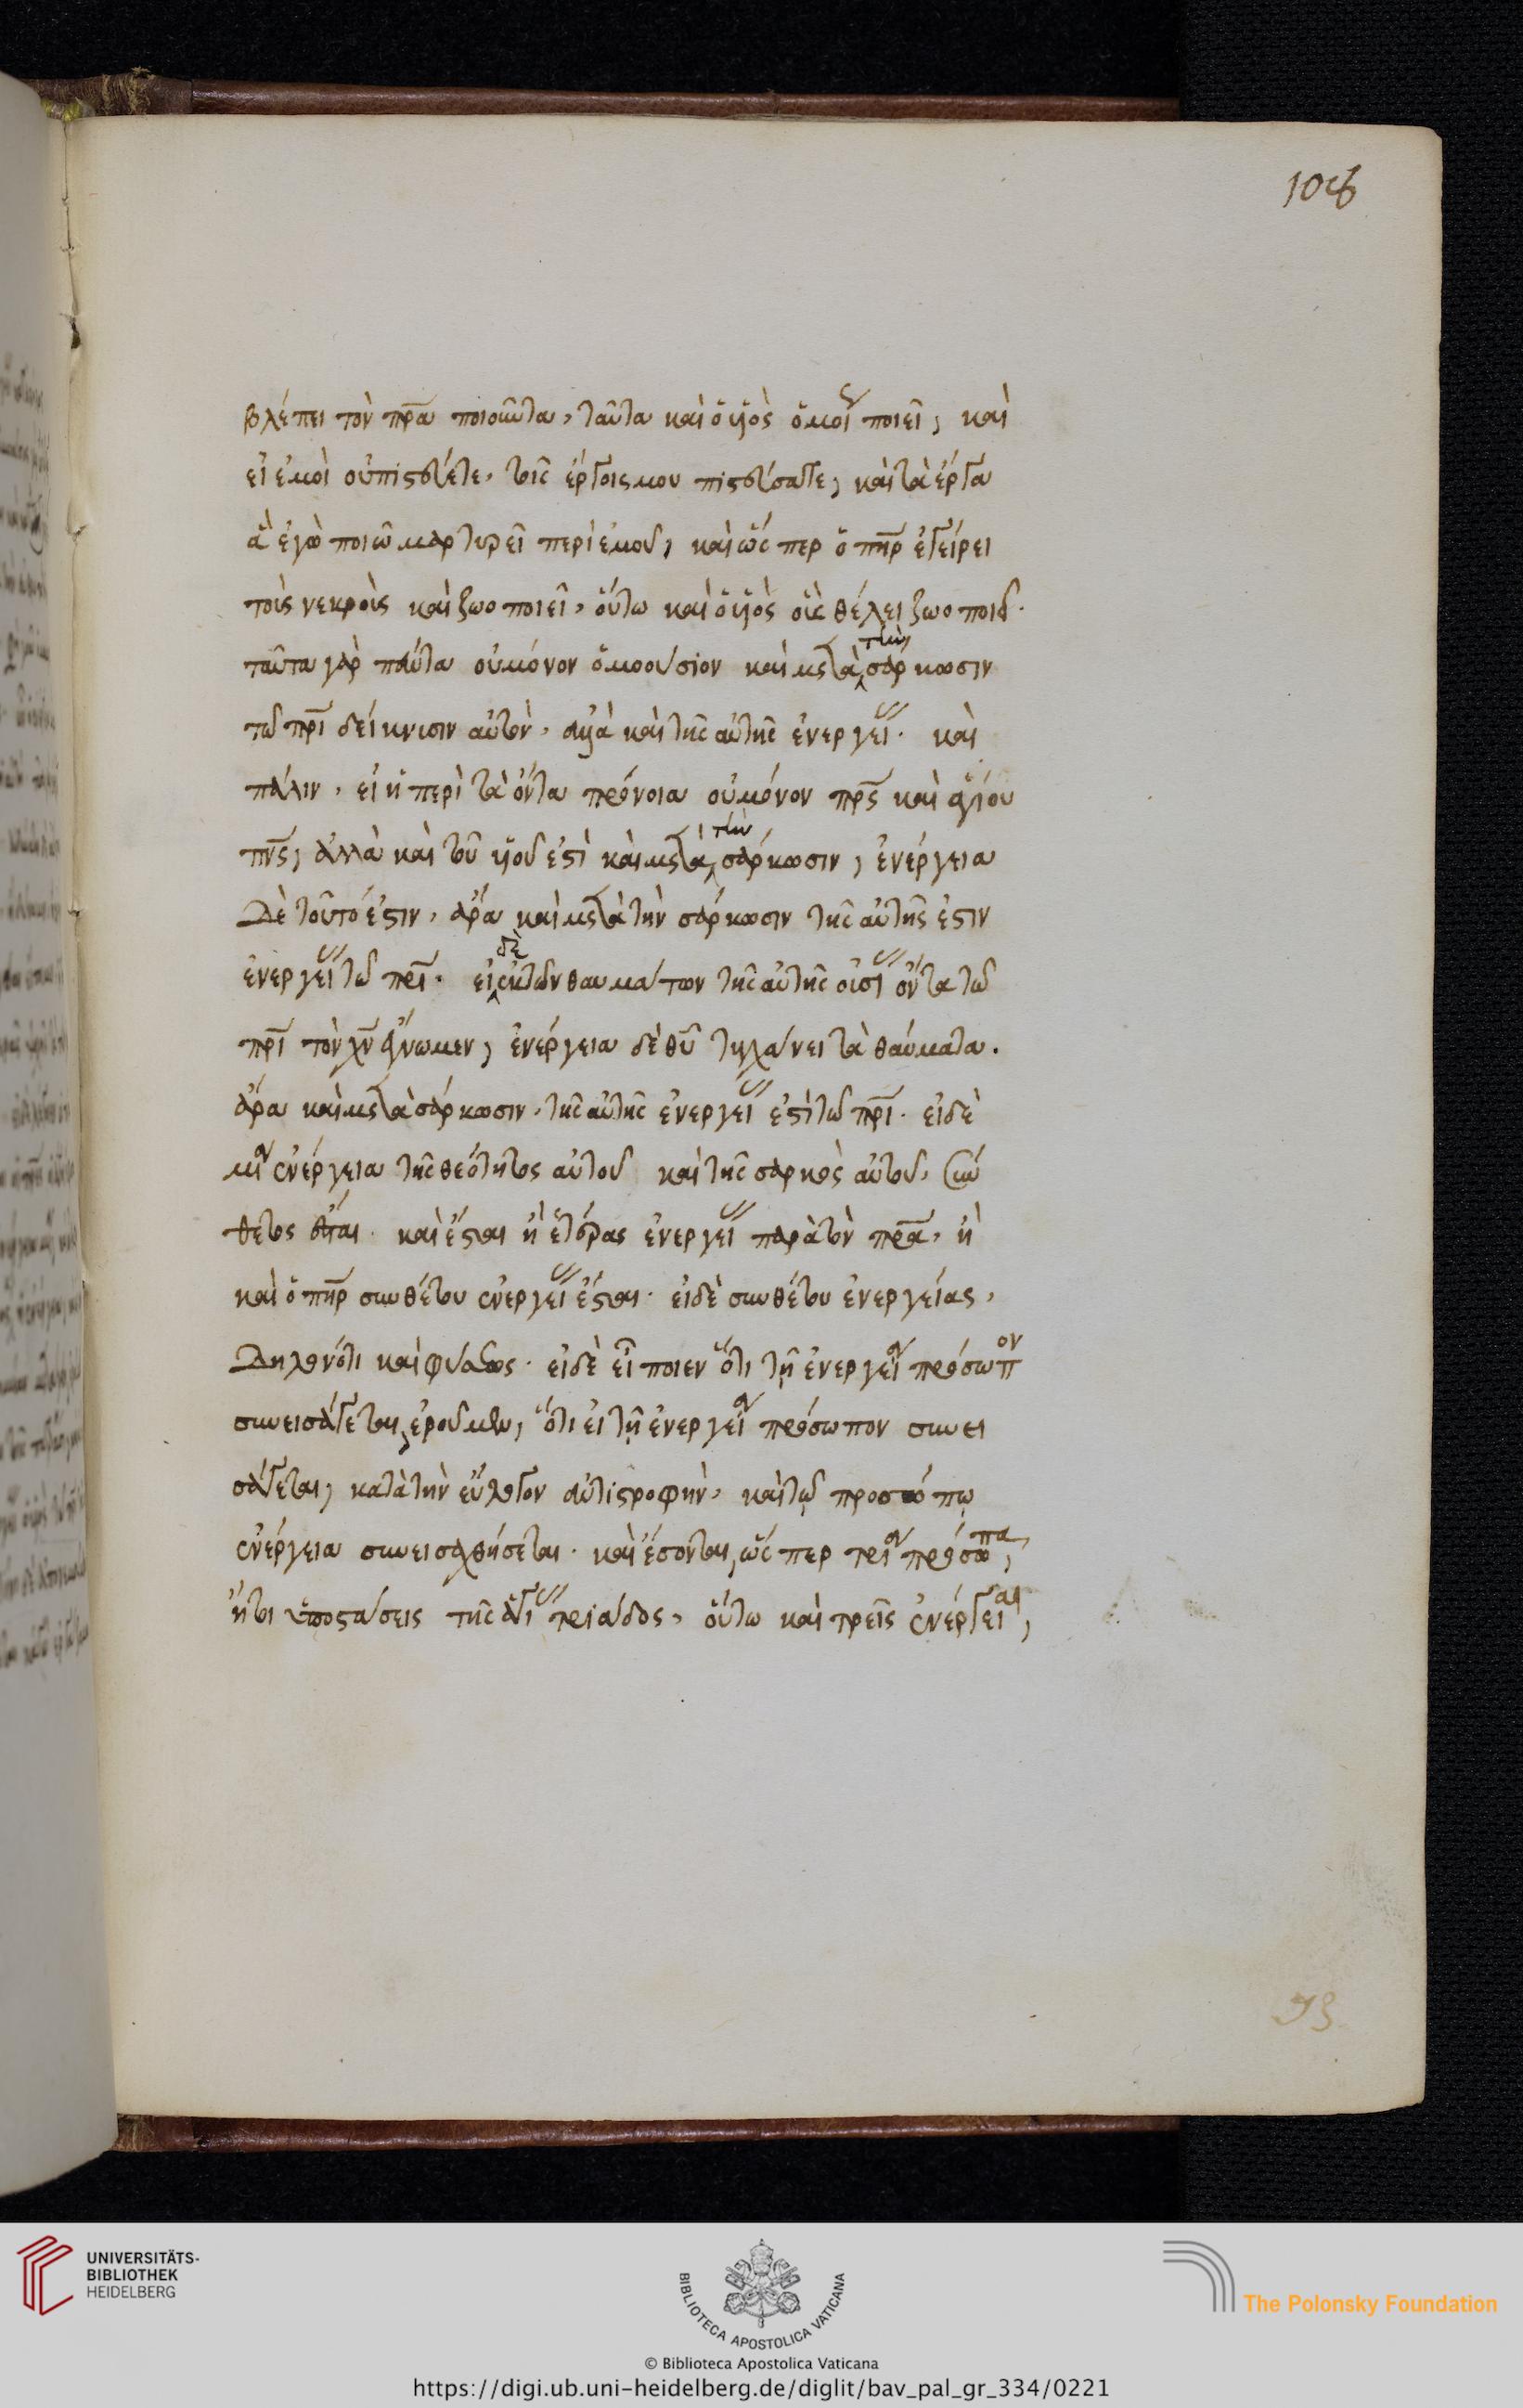 108
βλέπει τὸν πρ̅α ποιοῦντα, ταῦτα καὶ ὁ υἱὸς ὁμοί ποιεῖ, καὶ
εἰ ἐμοὶ οὐ πιστεύετε, τοῖς ἔργοις μου πιστεύσατε, καὶ τὰ ἔργα
ἃ ἐγὼ ποιῶ μαρτυρεῖ περὶ ἐμοῦ, καὶ ὥσπερ ὁ πη̅ρ ἐγείρει
τοὺς νεκροὺς καὶ ζωοποιεῖ, οὕτω καὶ ὁ υἱὸς οὓς θέλει ζωοποιεῖ.
ταῦτα γὰρ πάντα οὐ μόνον ὁμοούσιον καὶ μετὰ τὴν σάρκωσιν
τῶ πρι̅ δείκνυσιν αὐτὸν, ἀλλὰ καὶ τῆς αὐτῆς ἐνεργεί. καὶ
πάλιν, εἰ ἡ περὶ τὰ ὄντα πρόνοια οὐ μόνον πρ̅ς καὶ ἁγίου
πν̅ς, ἀλλὰ καὶ τοῦ υἱοῦ ἐστὶ καὶ μετὰ τὴν σάρκωσιν, ἐνέργεια
δὲ τοῦτό ἐστιν, ἄρα καὶ μετὰ τὴν σάρκωσιν τῆς αὐτῆς ἐστιν
ἐνεργεί τῶ πρι̅. εἰ δὲ ἐκ τῶν θαυμάτων τῆς αὐτῆς οὐσί ὄντα τῶ
πρι̅ τὸν χν̅ ἔγνωμεν, ἐνέργεια δὲ θυ̅ τυγχάνει τὰ θαύματα.
ἄρα καὶ μετὰ σάρκωσιν, τῆς αὐτῆς ἐνεργεί ἐστὶ τῶ πρι̅. εἰ δὲ
μία ἐνέργεια τῆς θεότητος αὐτοῦ καὶ τῆς σαρκὸς αὐτοῦ, σύν
θετος ἔσται. καὶ ἔσται ἢ ἑτέρας ἐνεργεί παρὰ τὸν πρα̅, ἢ
καὶ ὁ πη̅ρ συνθέτου ἐνεργεί ἔσται. εἰ δὲ συνθέτου ἐνεργείας,
δηλονότι καὶ φύσεως. εἰ δὲ εἴποιεν ὅτι τῇ ἐνεργεία πρόσωπον
συνεισάγεται, ἐροῦμεν, ὅτι εἰ τῇ ἐνεργεία πρόσωπον συνει
σάγεται, κατὰ τὴν εὔλογον ἀντιστροφὴν, καὶ τῷ προσώπῳ
ἐνέργεια συνεισαχθήσεται. καὶ ἔσονται, ὥσπερ τρία πρόσωπα,
ἤτοι ὑποστάσεις τῆς ἁγί τριάδος, οὕτω καὶ τρεῖς ἐνέργειαι,
93
UNIVERSITÄTS-
BIBLIOTHEK
HEIDELBERG
BIBLIOTECA APOSTOLICA VATICANA
The Polonsky Foundation
© Biblioteca Apostolica Vaticana
https://digi.ub.uni-heidelberg.de/diglit/bav_pal_gr_334/0221